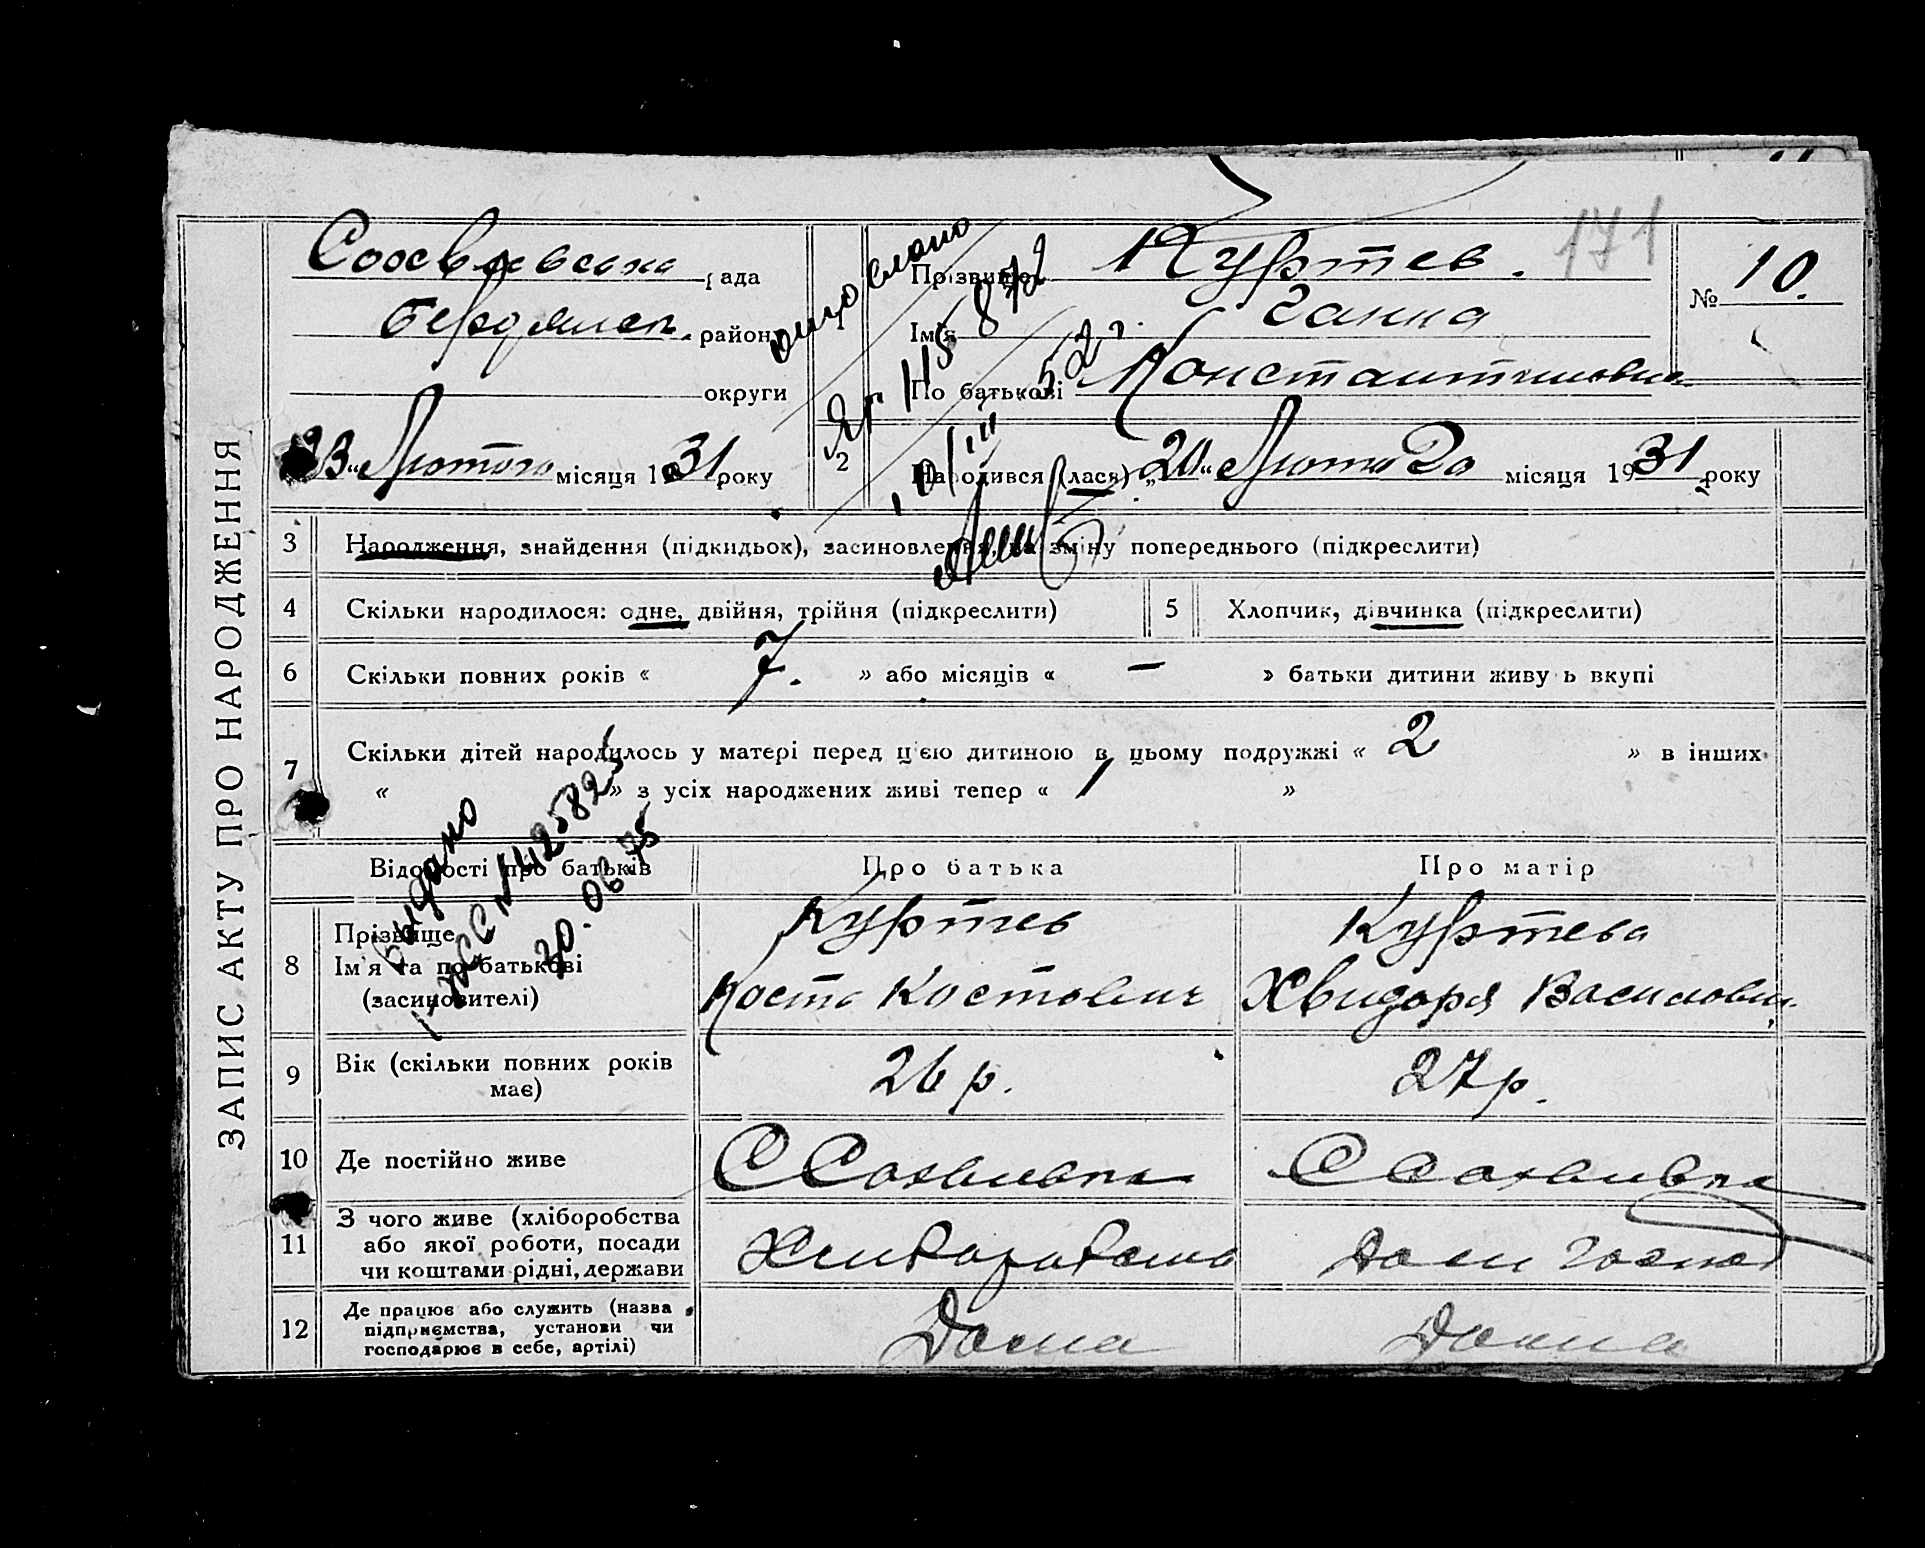 ЗАПИС АКТУ ПРО НАРОДЖЕННЯ
рада
Бердянськ. району
округи
"23" Лютого місяця 1931 року
2
Прізвище Куртев. 171
Ім'я Ганна
По батькові Константиновна
№ 10.
Народився (лася) „20“ Лютого місяця 1931 року
вислано
ЯГ 115 872
Видано
142582
20.06.75
3 Народження, знайдення (підкидьок), засиновлення, на зміну попереднього (підкреслити)
4 Скільки народилося: одне, двійня, трійня (підкреслити)
5 Хлопчик, дівчинка (підкреслити)
6 Скільки повних років « 7. » або місяців « — » батьки дитини живуть вкупі
7 Скільки дітей народилось у матері перед цією дитиною в цьому подружжі « 2 » в інших
« » з усіх народжених живі тепер « 1 »
Відомості про батьків Про батька Про матір
8 Прізвище Куртев Куртева
Ім'я та по батькові Коста Костович Хвидоря Василовн.
(засиновителі)
9 Вік (скільки повних років має) 26 р. 27 р.
10 Де постійно живе С Софиевка С Софиевка
11 З чого живе (хліборобства
або якої роботи, посади
чи коштами рідні, держави
Хлиборобство Дом господ
12 Де працює або служить (назва
підприємства, установи чи
господарює в себе, артілі)
Дома Дома